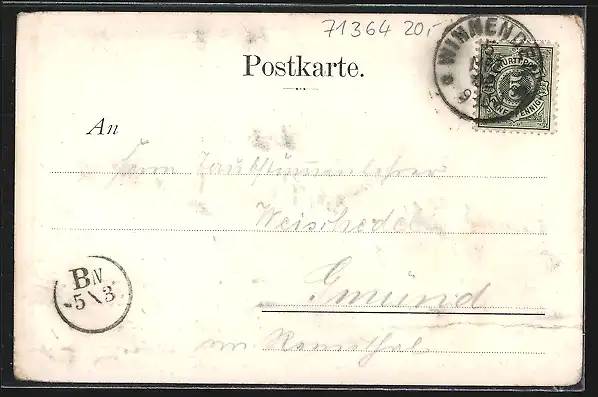 71364 20,-
WINNENDEN
Postkarte.
An
Herrn Taubstummenlehrer
Weischedel
Gmünd
im Remsthal
BN
5 \ 3
5